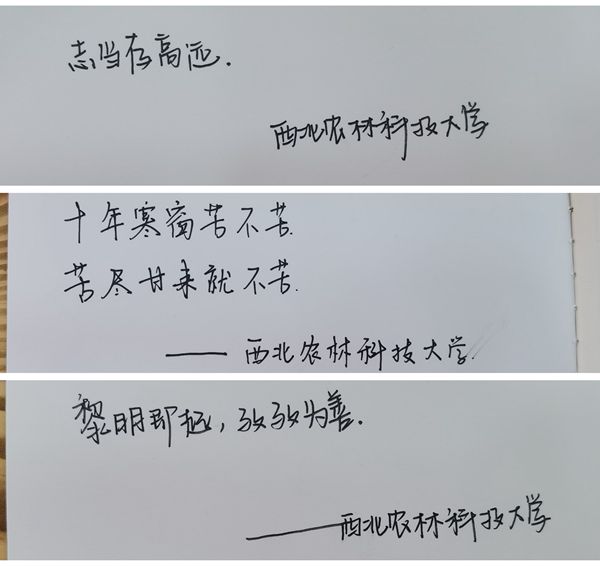 志当存高远.
西北农林科技大学
十年寒窗苦不苦.
苦尽甘来就不苦.
——西北农林科技大学.
黎明即起，孜孜为善.
——西北农林科技大学